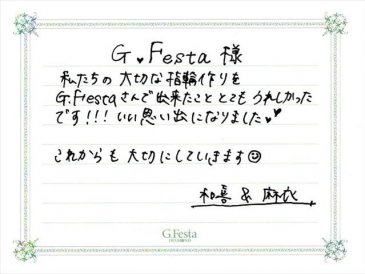 G♥Festa 様
私たちの 大切な指輪作りを
G.Festaさんで出来たこと とても うれしかった
です!!! いい思い出になりました♥♥
これからも 大切にしていきます☺
和喜 & 麻衣
G.Festa
DIAMOND